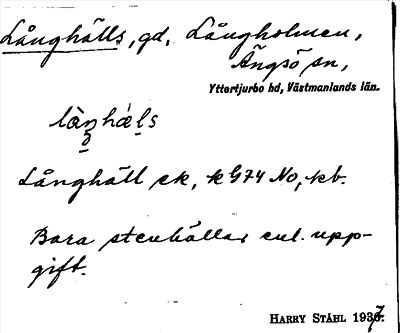 Långhälls, gd, Långholmen,
Ängsö sn,
Yttertjurbo hd, Västmanlands län.
là̀ŋhǽls
Långhäll ek, k G74 No, kb.
Bara stenhällar enl. upp-
gift.
HARRY STÅHL 1937.